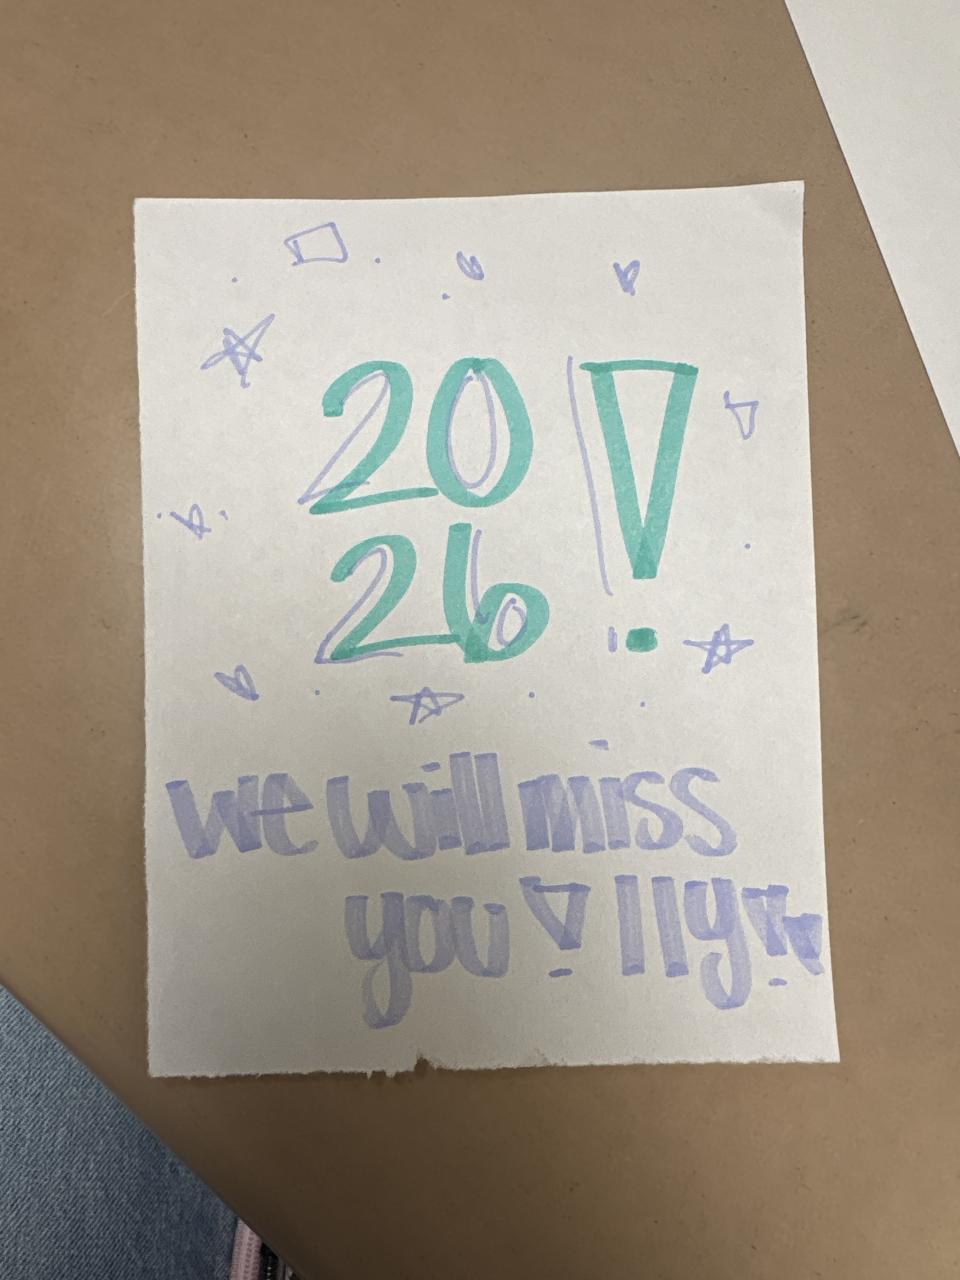 20
26 !
we will miss
you!